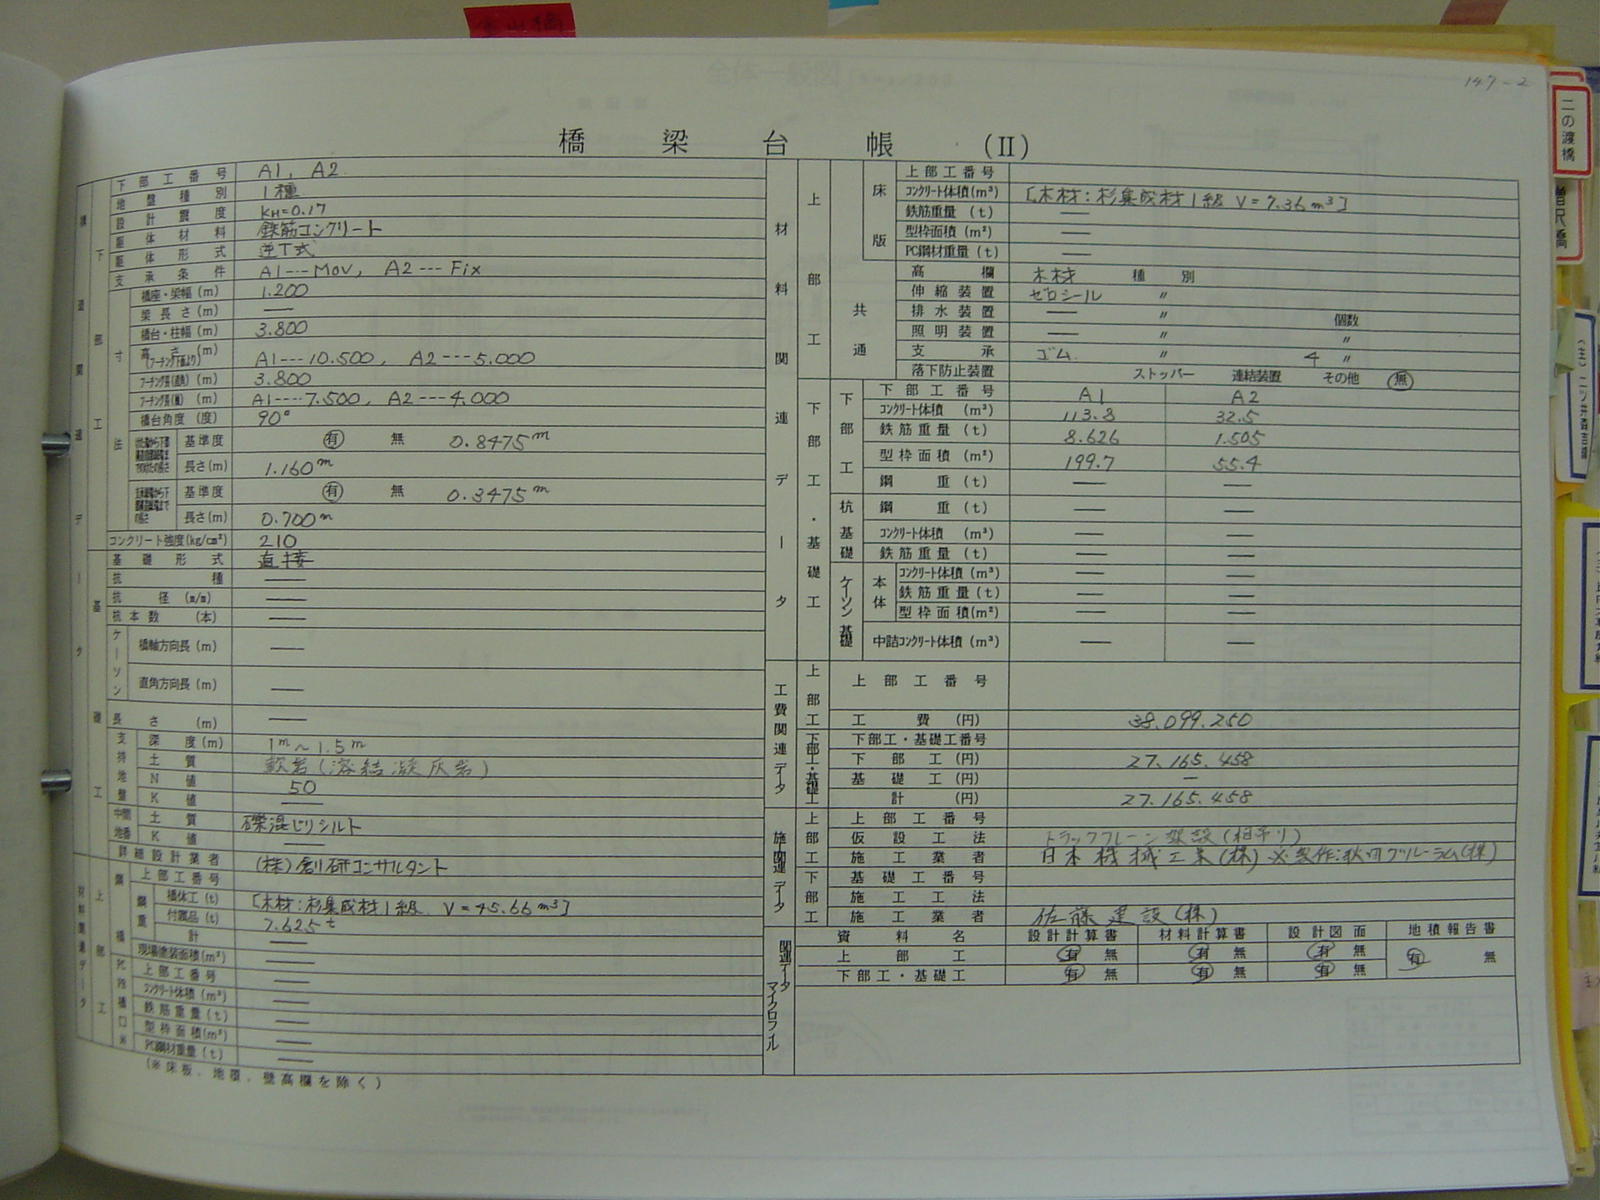 147-2
二の渡橋
橋梁台帳 (II)
下部工番号 A1, A2
地盤種別 1種
設計震度 KH=0.17
躯体材料 鉄筋コンクリート
躯体形式 逆T式
支承条件 A1---Mov, A2---Fix
橋座・梁幅(m) 1.200
梁長さ(m) ―
橋台・柱幅(m) 3.800
高さ(m) (フーチング下面より) A1---10.500, A2---5.000
フーチング長(直角)(m) 3.800
A1---7.500, A2---4.000
橋台角度(度) 90°
基準度 有 無 0.8475m
長さ(m) 1.160m
基準度 有 無 0.3475m
長さ(m) 0.700m
コンクリート強度(kg/cm²) 210
基礎形式 直接
杭種 ―
杭径(m/m) ―
杭本数(本) ―
ケーソン
橋軸方向長(m) ―
直角方向長(m) ―
長さ(m) ―
支持地盤
深度(m) 1m~1.5m
土質 軟岩(溶結凝灰岩)
N値 50
K値 ―
中間地番
土質 礫混じりシルト
K値 ―
詳細設計業者 (株)創研コンサルタント
上部工番号
橋体工(t) [木材:杉集成材1級 V=45.66m³]
付属品(t) 7.625t
計 ―
現場塗装面積(m²) ―
上部工番号 ―
コンクリート体積(m³) ―
鉄筋重量(t) ―
型枠面積(m²) ―
PC鋼材重量(t) ―
(※床板、地覆、壁高欄を除く)
材料関連データ
上部工
床版
上部工番号
コンクリート体積(m³) [木材:杉集成材1級 V=7.36m³]
鉄筋重量(t) ―
型枠面積(m²) ―
PC鋼材重量(t) ―
共通
高欄 木材 種別
伸縮装置 ゼロシール 〃
排水装置 ― 〃 個数
照明装置 ― 〃 〃
支承 ゴム 〃 4 〃
落下防止装置 ストッパー 連結装置 その他 無
下部工・基礎工
下部工
下部工番号 A1 A2
コンクリート体積(m³) 113.8 32.5
鉄筋重量(t) 8.626 1.505
型枠面積(m²) 199.7 55.4
鋼重(t) ― ―
杭基礎
鋼重(t) ― ―
コンクリート体積(m³) ― ―
鉄筋重量(t) ― ―
ケーソン基礎
本体
コンクリート体積(m³) ― ―
鉄筋重量(t) ― ―
型枠面積(m²) ― ―
中詰コンクリート体積(m³) ― ―
工費関連データ
上部工
上部工番号
工費(円) 38.099.250
下部工・基礎工
下部工・基礎工番号
下部工(円) 27.165.458
基礎工(円) ―
計(円) 27.165.458
施工関連データ
上部工
上部工番号
仮設工法 トラッククレーン架設(相吊り)
施工業者 日本機械工業(株) ※製作:秋田グルーラム(株)
下部工
基礎工番号
施工工法
施工業者 佐藤建設(株)
関連データマイクロフィルム
資料名 設計計算書 材料計算書 設計図面 地積報告書
上部工 有 無 有 無 有 無 有 無
下部工・基礎工 有 無 有 無 有 無